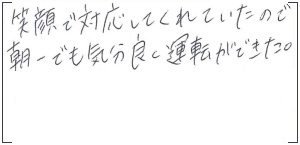 笑顔で対応してくれていたので
朝一でも気分良く運転ができた。